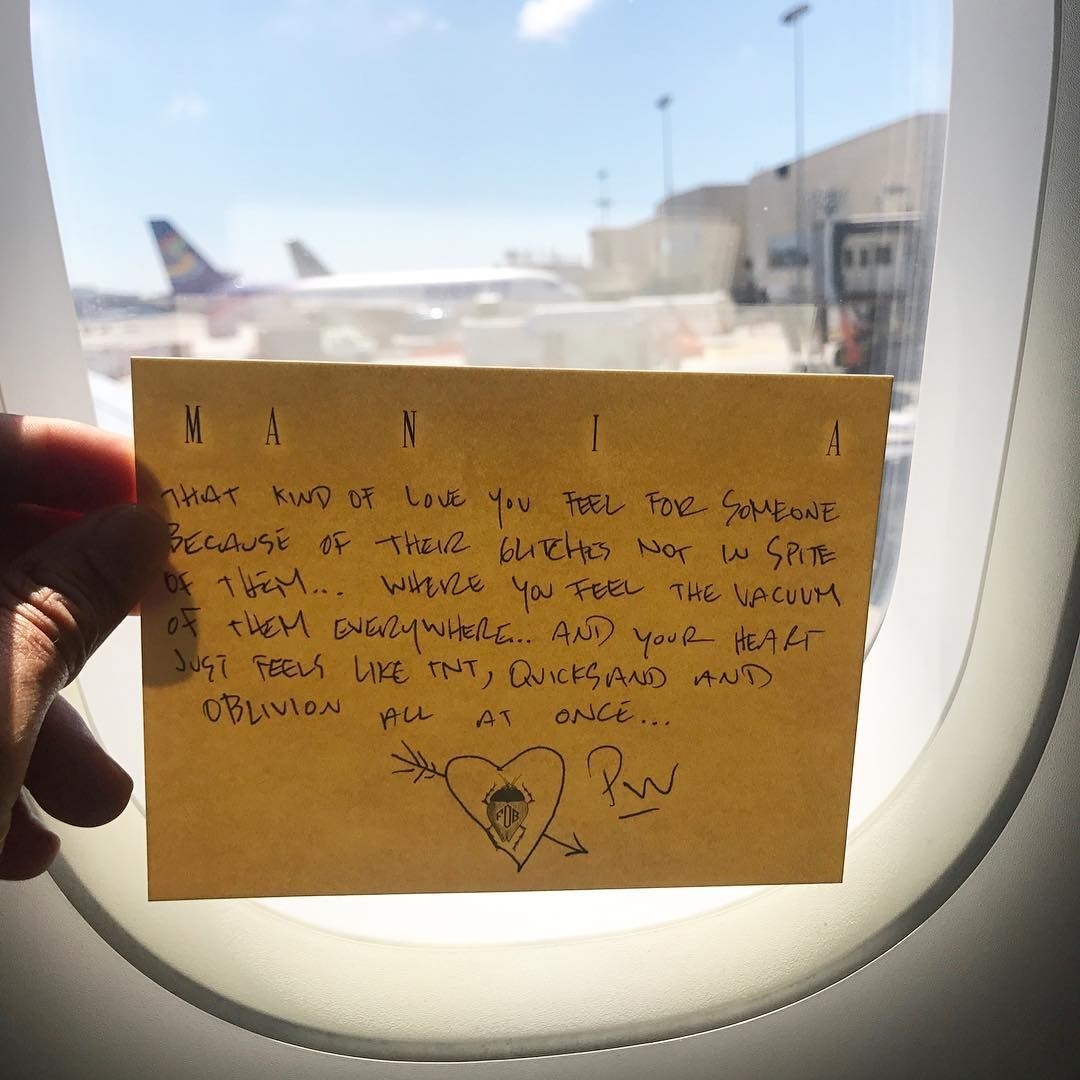 M A N I A
THAT KIND OF LOVE YOU FEEL FOR SOMEONE
BECAUSE OF THEIR GLITCHES NOT IN SPITE
OF THEM... WHERE YOU FEEL THE VACUUM
OF THEM EVERYWHERE... AND YOUR HEART
JUST FEELS LIKE TNT, QUICKSAND AND
OBLIVION ALL AT ONCE...
FOB
PW